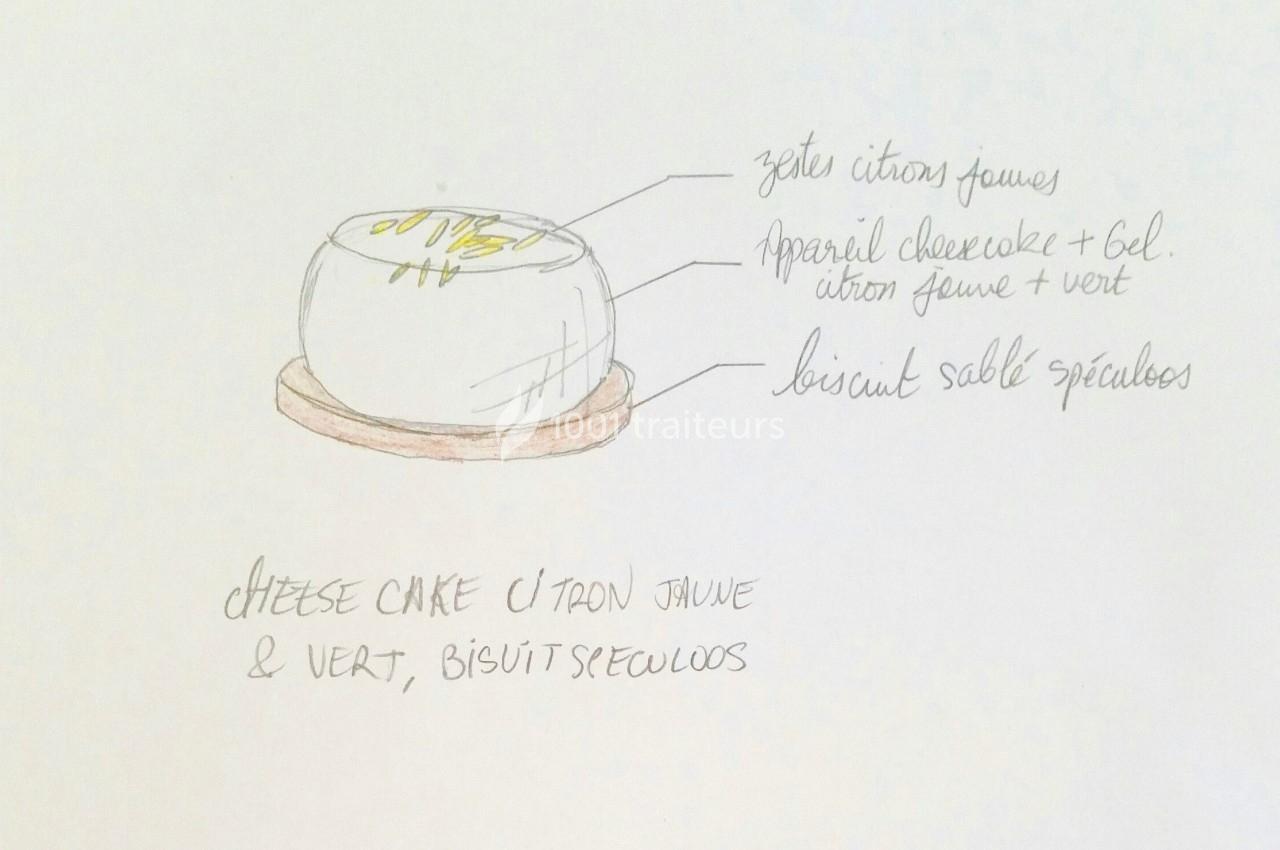 zestes citrons jaunes
Appareil cheesecake + Gel.
citron jaune + vert
biscuit sablé spéculoos
1001 traiteurs
CHEESE CAKE CITRON JAUNE
& VERT, BISUIT SPECULOOS